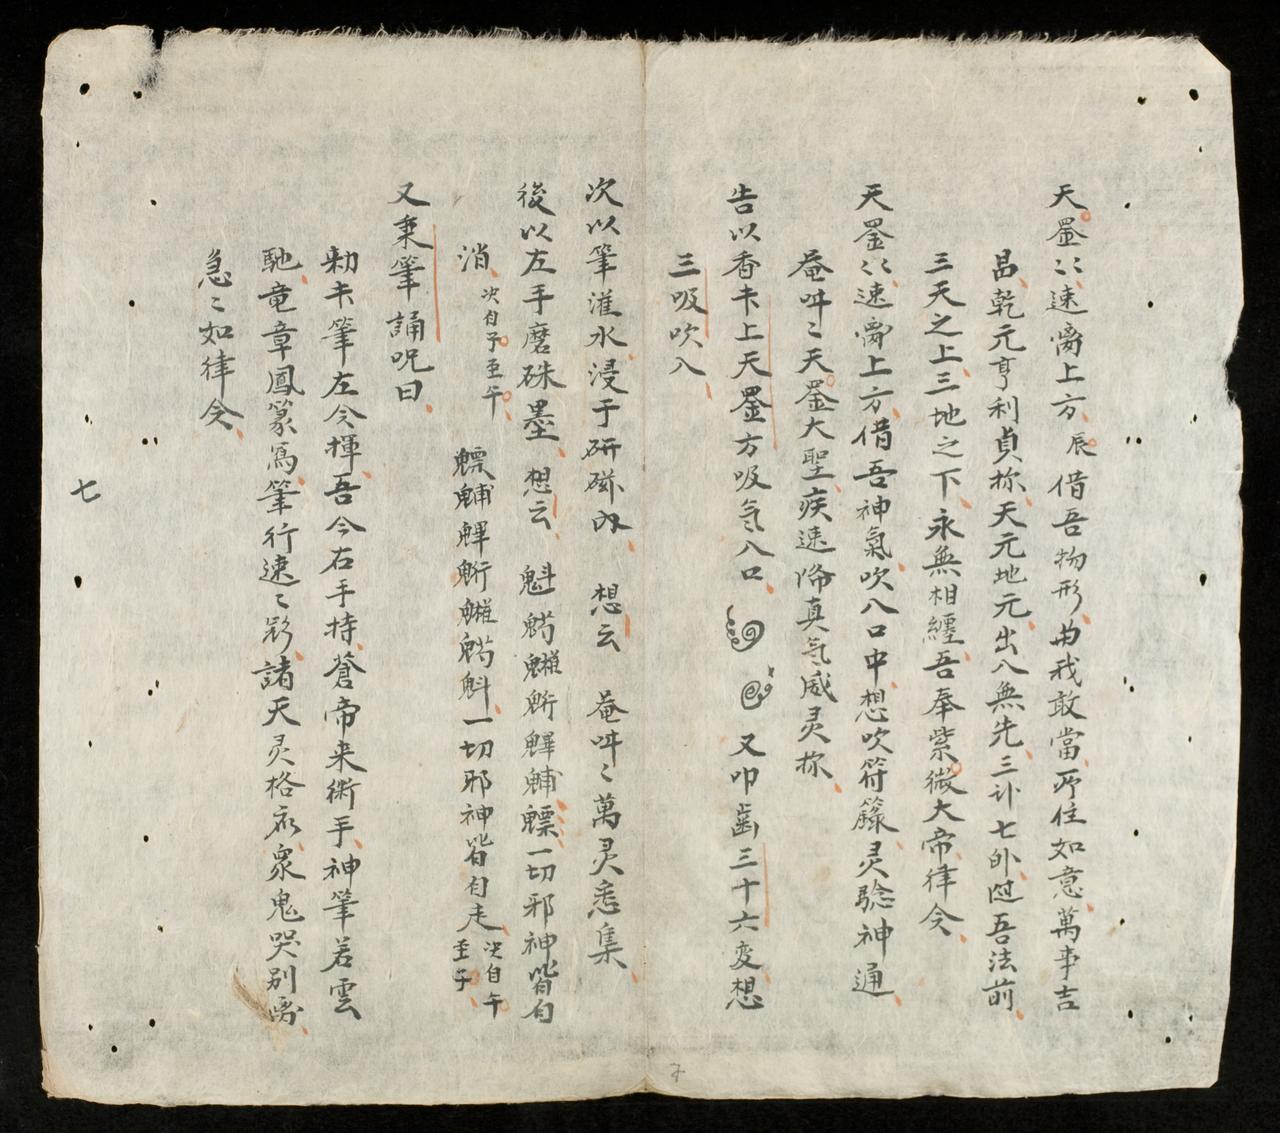 天罡〻速离上方辰借吾物形由我敢當所住如意萬事吉
昌乾元亨利貞捺天元地元出入無先三卟七卧过吾法前
三天之上三地之下永無相纏吾奉紫微大帝律令
天罡〻速离上方借吾神氣吹八口中想吹符籙灵驗神通
菴吽〻天罡大聖疾速降真气威灵捺
告以香卡上天罡方吸气八口 又叩齒三十六变想
三吸吹八
次以筆灌水浸于研磁內 想云 菴吽〻萬灵悉集
後以左手磨硃墨想云 魁䰢 一切邪神皆自
消次自子至午 一切邪神皆自走次自午至子
又秉筆誦呪曰
勅卡筆左令揮吾令右手持蒼帝来衛手神筆若雲
馳竜章鳳篆寫筆行速〻 諸天灵格 衆鬼哭别
急〻如律令
七